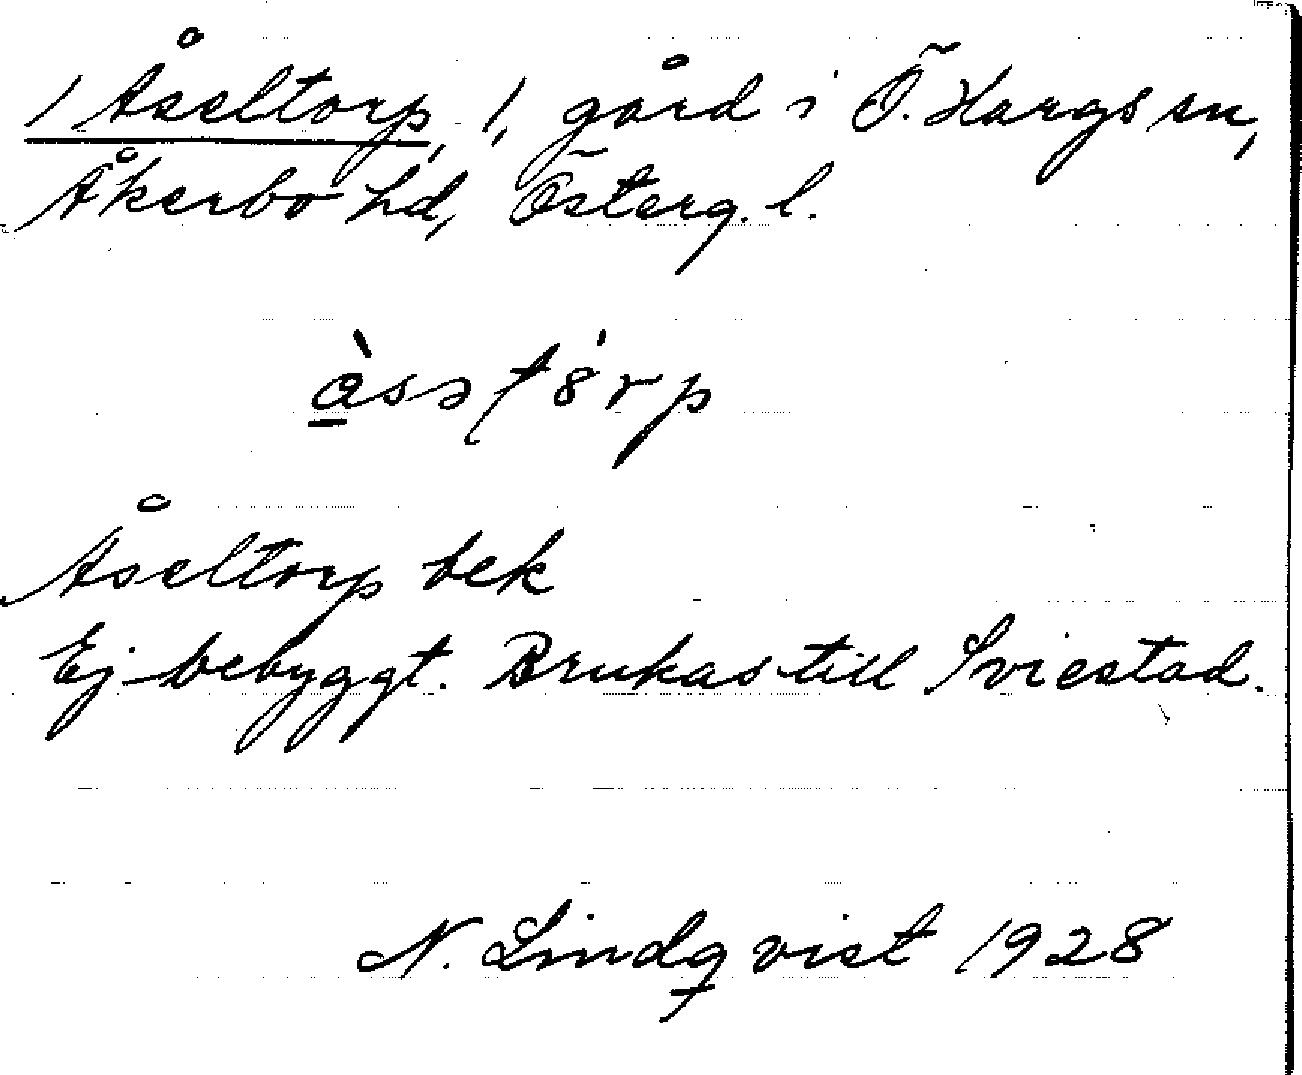 1 Åseltorp, 1, gård i Ö. Hargs sn,
Åkerbo hd, Österg. l.
Åseltorp bek
Ej bebyggt. Brukas till Sviestad.
N. Lindqvist 1928